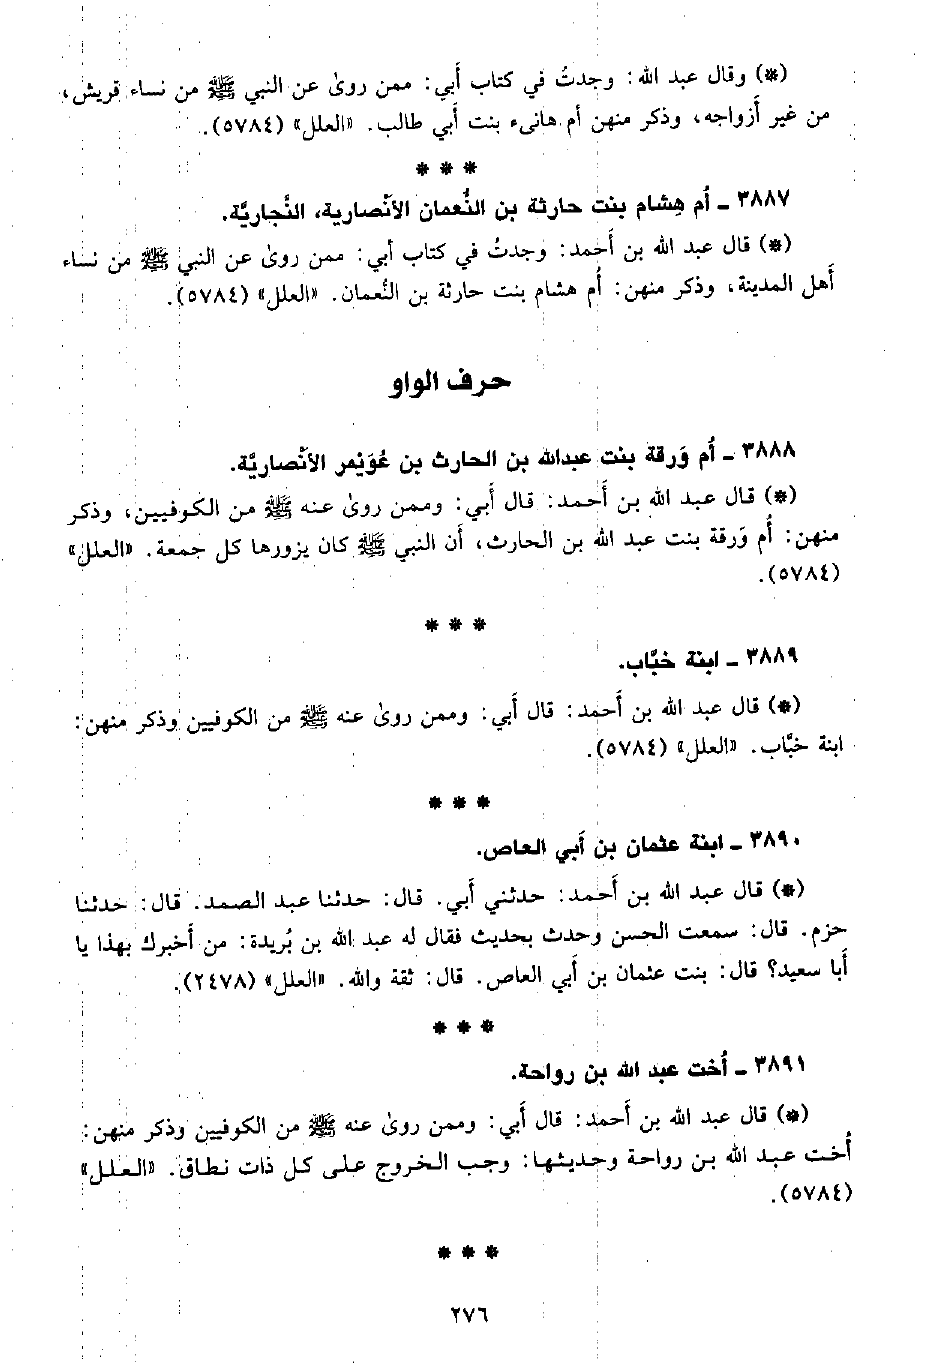 (*) وقال عبد الله: وجدتُ في كتاب أَبي: ممن روىٰ عن النبي ﷺ من نساء قريش،
من غير أَزواجه، وذكر منهن أم هانىء بنت أبي طالب. «العلل» (٥٧٨٤).
* * *
٣٨٨٧ ـ أُم هِشام بنت حارثة بن النُّعمان الأَنْصارية، النَّجاريَّة.
(*) قال عبد الله بن أَحمد: وجدتُ في كتاب أبي: ممن روىٰ عن النبي ﷺ من نساء
أَهل المدينة، وذكر منهن: أُم هشام بنت حارثة بن النُّعمان. «العلل» (٥٧٨٤).
حرف الواو
٣٨٨٨ ـ أُم وَرقة بنت عبدالله بن الحارث بن عُوَيْمر الأَنْصاريَّة.
(*) قال عبد الله بن أَحمد: قال أَبي: وممن روىٰ عنه ﷺ من الكوفيين، وذكر
منهن: أُم وَرقة بنت عبد الله بن الحارث، أَن النبي ﷺ كان يزورها كل جمعة. «العلل»
(٥٧٨٤).
* * *
٣٨٨٩ ـ ابنة خبَّاب.
(*) قال عبد الله بن أَحمد: قال أَبي: وممن روىٰ عنه ﷺ من الكوفيين وذكر منهن:
ابنة خبَّاب. «العلل» (٥٧٨٤).
* * *
٣٨٩٠ ـ ابنة عثمان بن أَبي العاص.
(*) قال عبد الله بن أَحمد: حدثني أَبي. قال: حدثنا عبد الصمد. قال: حدثنا
حزم. قال: سمعت الحسن وحدث بحديث فقال له عبد الله بن بُريدة: من أَخبرك بهذا يا
أَبا سعيد؟ قال: بنت عثمان بن أَبي العاص. قال: ثقة والله. «العلل» (٢٤٧٨).
* * *
٣٨٩١ ـ أُخت عبد الله بن رواحة.
(*) قال عبد الله بن أَحمد: قال أَبي: وممن روىٰ عنه ﷺ من الكوفيين وذكر منهن:
أُخت عبد الله بن رواحة وحديثها: وجب الخروج على كل ذات نطاق. «العلل»
(٥٧٨٤).
* * *
٢٧٦